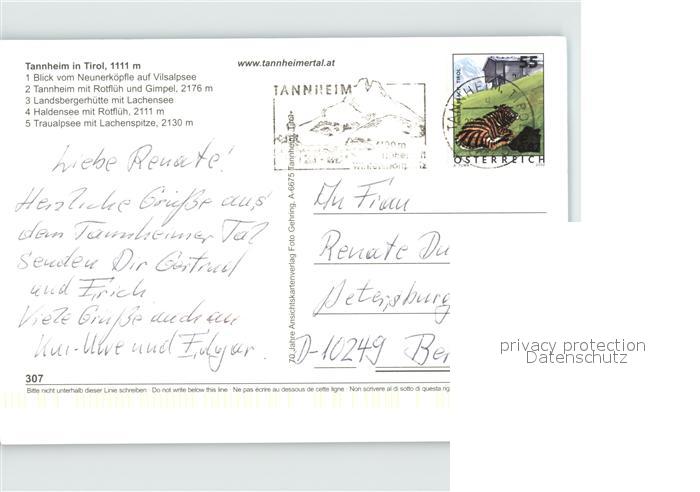 Tannheim in Tirol, 1111 m
1 Blick vom Neunerköpfle auf Vilsalpsee
2 Tannheim mit Rotflüh und Gimpel, 2176 m
3 Landsbergerhütte mit Lachensee
4 Haldensee mit Rotflüh, 2111 m
5 Traualpsee mit Lachenspitze, 2130 m
www.tannheimertal.at
TANNHEIM
55
ÖSTERREICH
Liebe Renate!
Herzliche Grüße aus
dem Tannheimer Tal
senden Dir Gertrud
und Erich.
Viele Grüße auch an
Kai-Uwe und Edgar.
307
70 Jahre Ansichtskartenverlag Foto Gehring, A-6675 Tannheim, Tirol
An Frau
Renate Du
Petersburg
D-10249 Ber
privacy protection
Datenschutz
Bitte nicht unterhalb dieser Linie schreiben · Do not write below this line · Ne pas écrire au dessous de cette ligne · Non scrivere al di sotto di questa rig